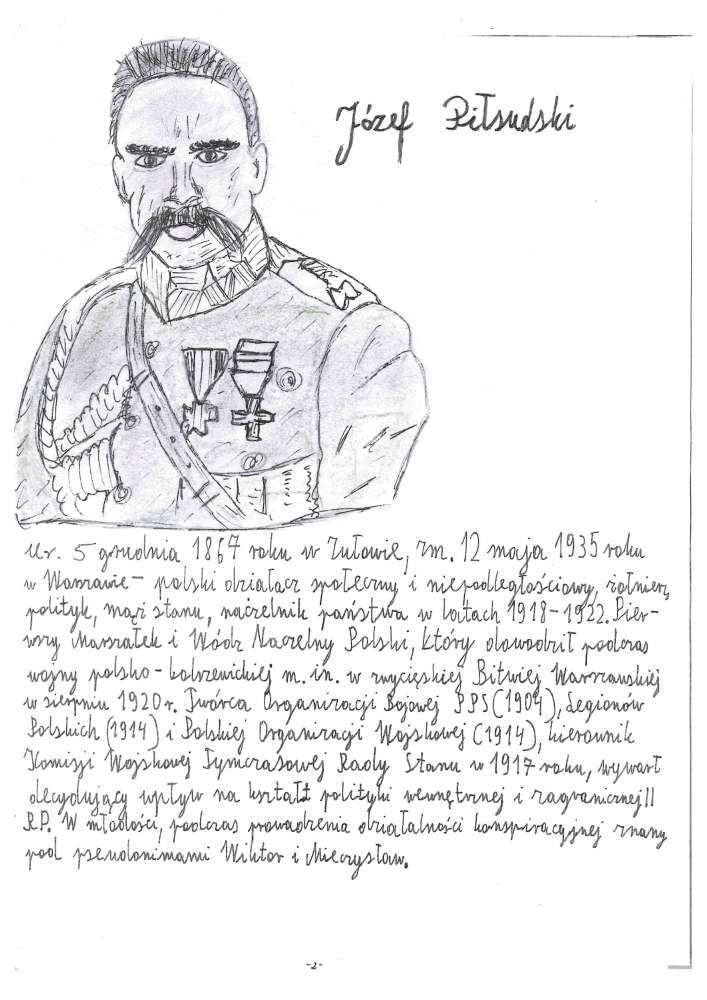 Józef Piłsudski
Ur. 5 grudnia 1867 roku w Zułowie, zm. 12 maja 1935 roku
w Warszawie - polski działacz społeczny i niepodległościowy, żołnierz,
polityk, mąż stanu, naczelnik państwa w latach 1918-1922. Pier-
wszy Marszałek i Wódz Naczelny Polski, który dowodził podczas
wojny polsko-bolszewickiej m. in. w zwycięskiej Bitwiej Warszawskiej
w sierpniu 1920 r. Twórca Organizacji Bojowej PPS (1904), Legionów
Polskich (1914) i Polskiej Organizacji Wojskowej (1914), kierownik
Komisji Wojskowej Tymczasowej Rady Stanu w 1917 roku, wywarł
decydujący wpływ na kształt polityki wewnętrznej i zagranicznej II
R.P. W młodości, podczas prowadzenia działalności konspiracyjnej znany
pod pseudonimami Wiktor i Mieczysław.
-2-